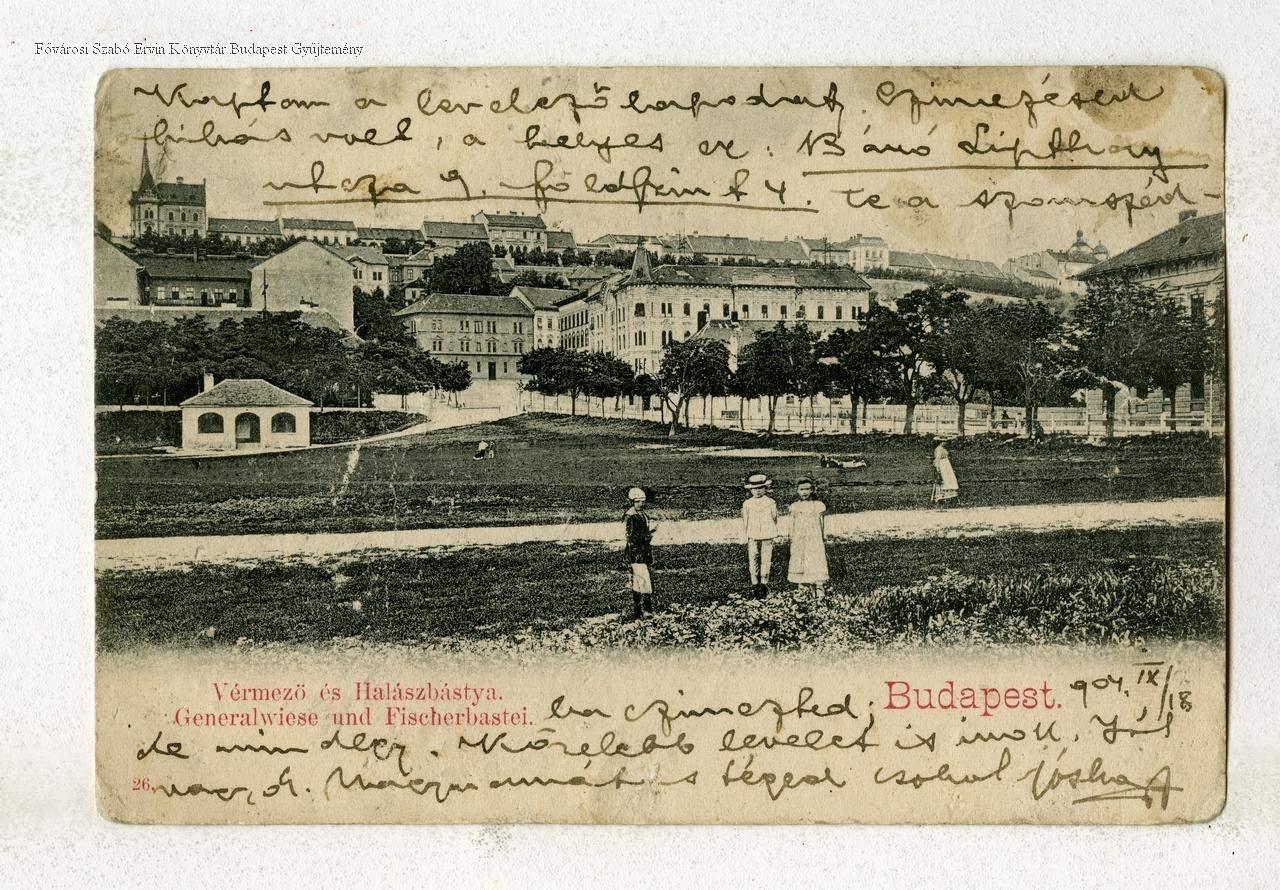 Fővárosi Szabó Ervin Könyvtár Budapest Gyűjtemény
Kaptam a levelező lapodat. Czimezésed
hibás volt, a helyes ez: Báró Lipthay
utcza 9. földszint 4. te a szomszéd-
Vérmező és Halászbástya.
Generalwiese und Fischerbastei.
Budapest.
904. IX/18
ba czimezted;
de mindegy. Közelebb levelet is irok. Jól
26.
vagyok. Nagymamát s téged csokol Jóska